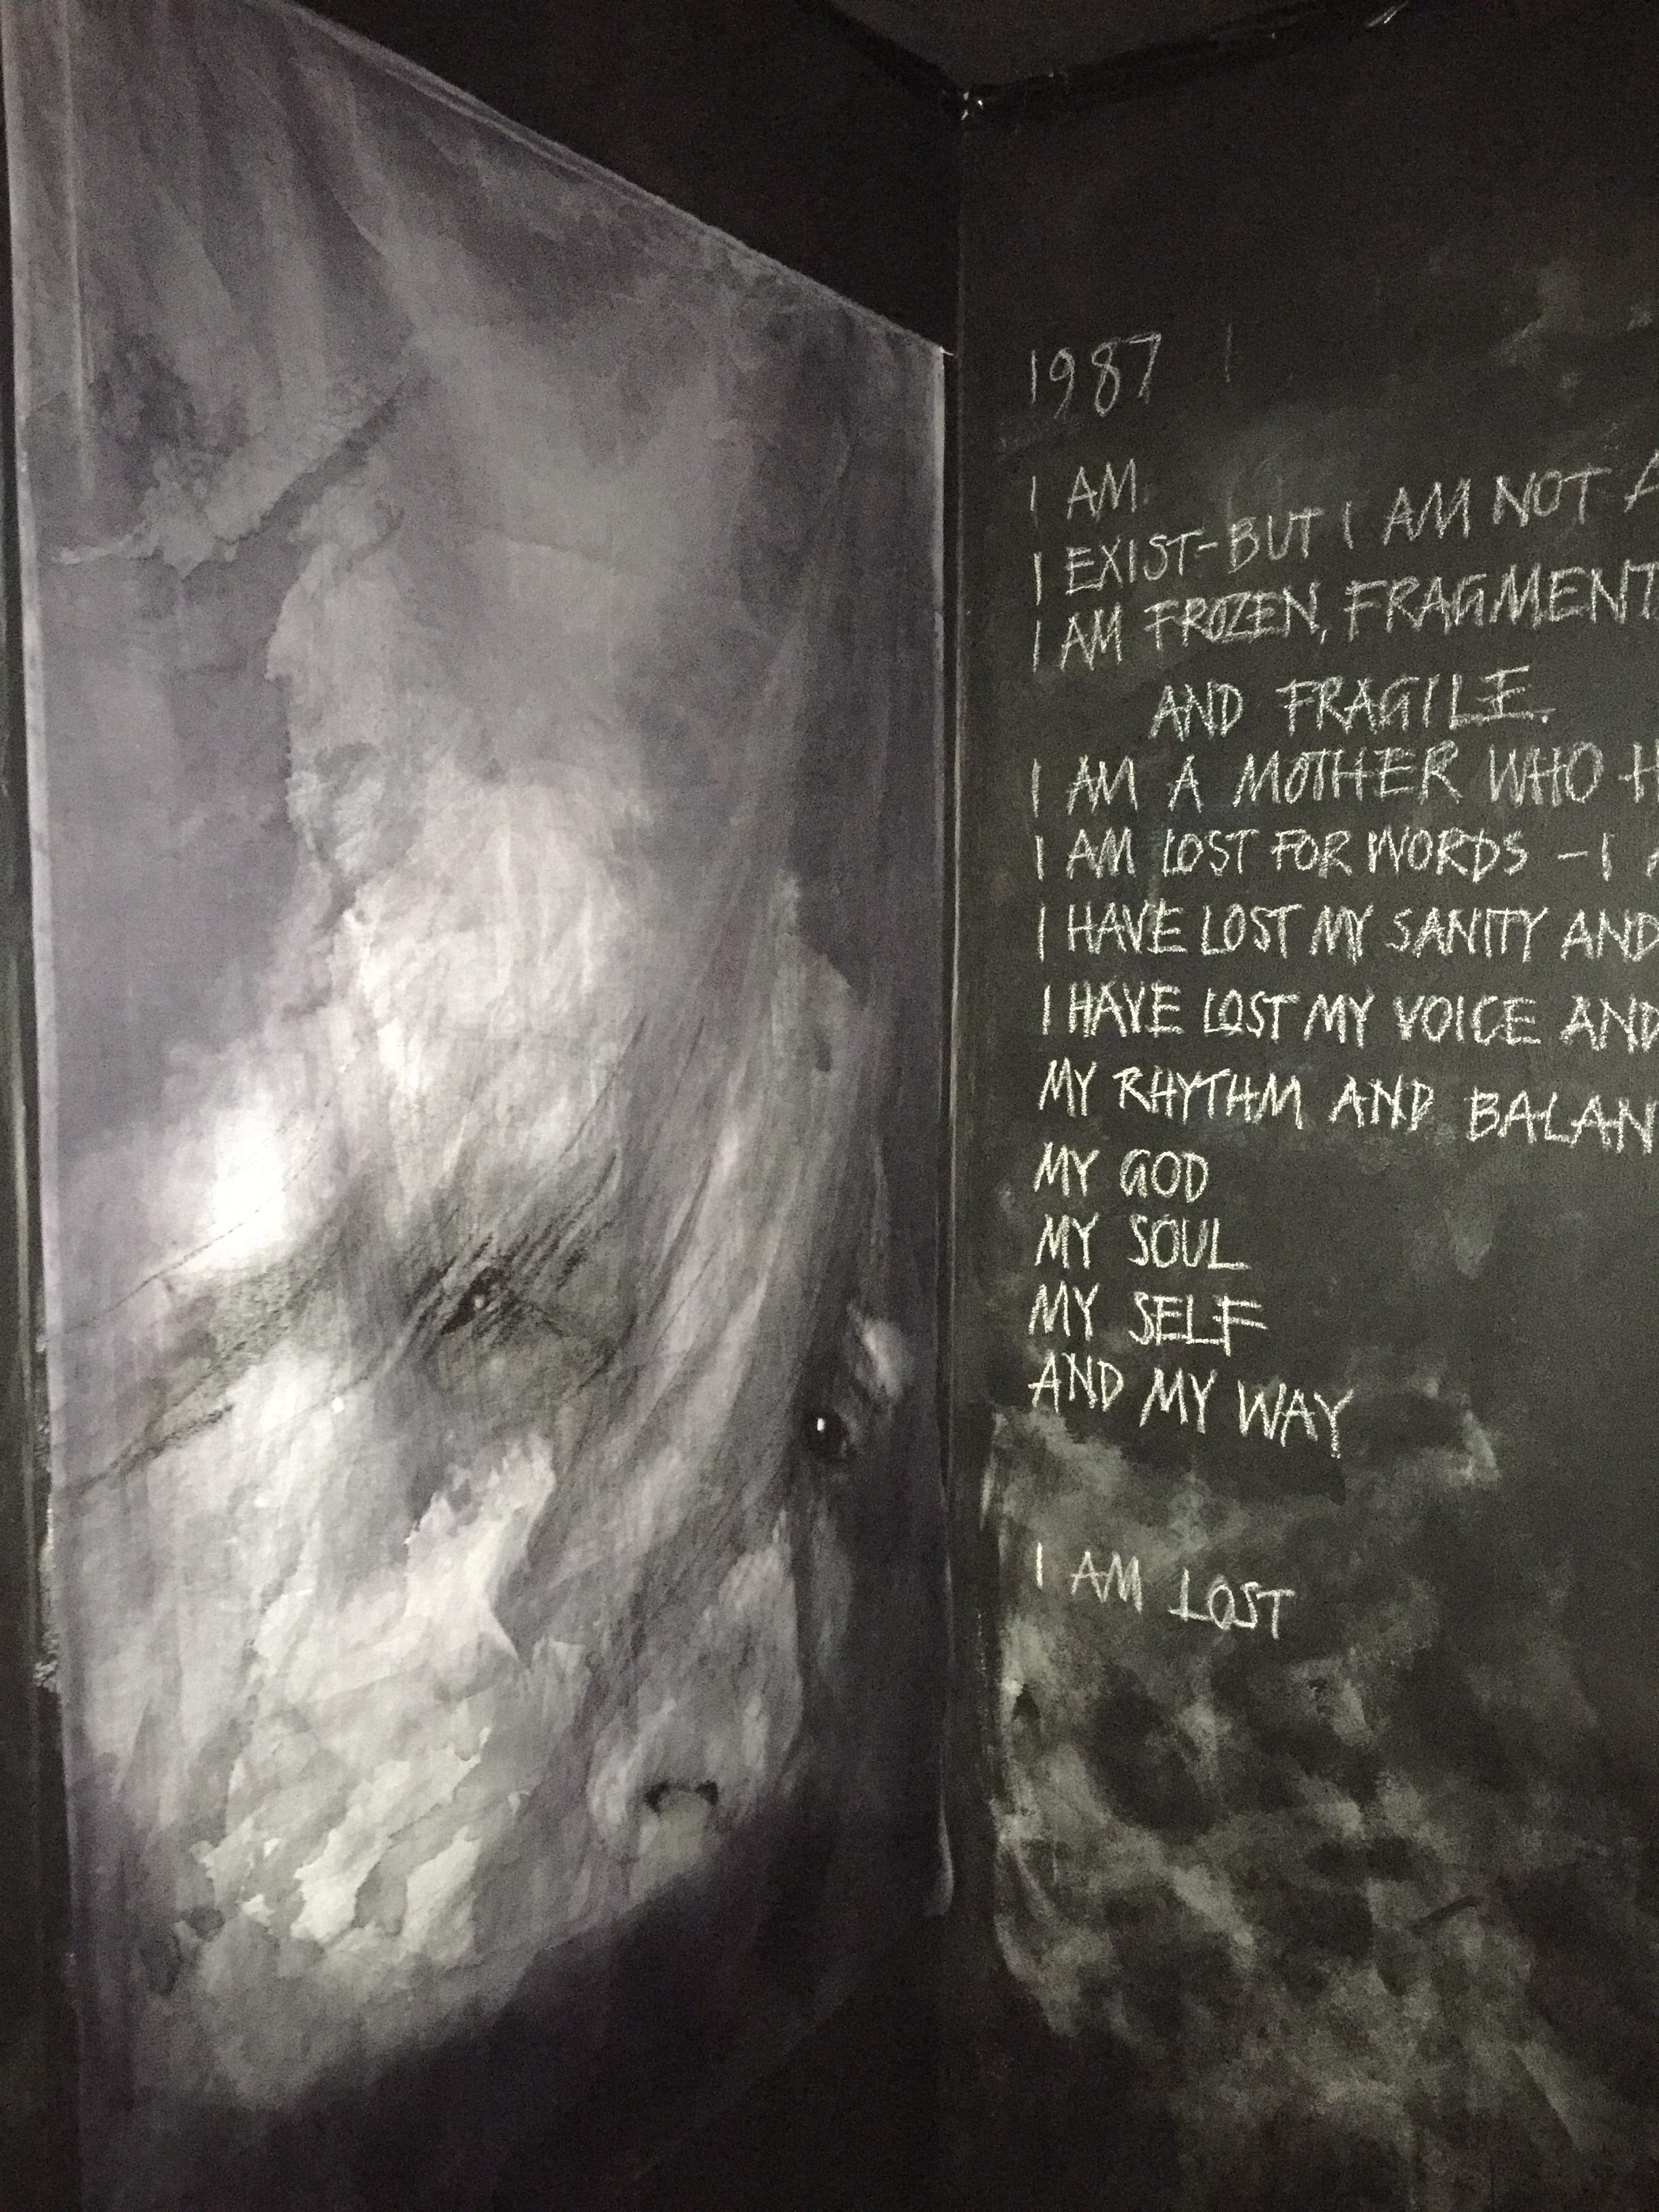 1987
I AM
I EXIST-BUT I AM NOT
I AM FROZEN,
AND FRAGILE.
I AM A MOTHER WHO
I AM LOST FOR WORDS - I
I HAVE LOST MY SANITY AND
I HAVE LOST MY VOICE AND
MY RHYTHM AND
MY GOD
MY SOUL
MY SELF
AND MY WAY
I AM LOST